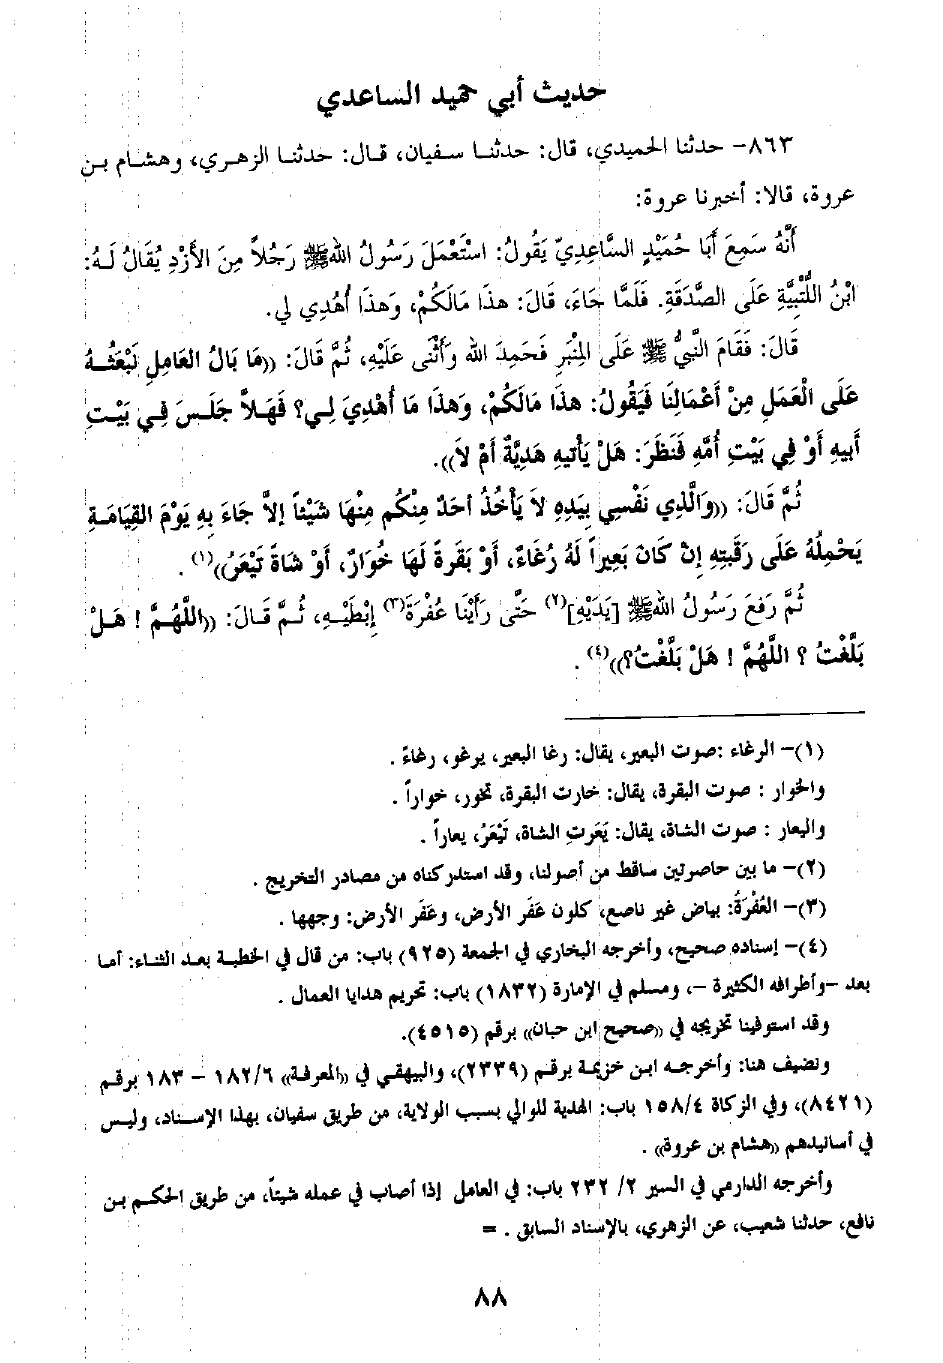 حديث أبي حميد الساعدي
٨٦٣- حدثنا الحميدي، قال: حدثنا سفيان، قال: حدثنا الزهري، وهشام بن
عروة، قالا: أخبرنا عروة:
أَنَّهُ سَمِعَ أَبَا حُمَيْدٍ السَّاعِدِيّ يَقُولُ: اسْتَعْمَلَ رَسُولُ اللهِ ﷺ رَجُلاً مِنَ الأَزْدِ يُقَالُ لَهُ:
ابْنُ اللُّتْبِيَّةِ عَلَى الصَّدَقَةِ. فَلَمَّا جَاءَ، قَالَ: هذَا مَالَكُمْ، وَهذَا أُهْدِيَ لي.
قَالَ: فَقَامَ النَّبِيُّ ﷺ عَلَى المِنْبَرِ فَحَمِدَ الله وَأَثْنَى عَلَيْهِ، ثُمَّ قَالَ: ((مَا بَالُ العَامِلِ نَبْعَثُهُ
عَلَى الْعَمَلِ مِنْ أَعْمَالِنَا فَيَقُولُ: هذَا مَالَكُمْ، وَهذَا مَا أُهْدِيَ لِي؟ فَهَلاَّ جَلَسَ فِي بَيْتِ
أَبيهِ أَوْ فِي بَيْتِ أُمِّهِ فَنَظَرَ: هَلْ يَأْتيهِ هَدِيَّةٌ أَمْ لاَ)).
ثُمَّ قَالَ: ((وَالَّذِي نَفْسِي بِيَدِهِ لاَ يَأْخُذُ أحَدٌ مِنْكُم مِنْهَا شَيْئاً إلاَّ جَاءَ بِهِ يَوْمَ القِيَامَةِ
يَحْمِلُهُ عَلَى رَقَبَتِهِ إنْ كَانَ بَعِيراً لَهُ رُغَاءٌ، أَوْ بَقَرةً لَهَا خُوَارٌ، أَوْ شَاةً تَيْعَرُ))(١) .
ثُمَّ رَفَعَ رَسُولُ اللهِ ﷺ [يَدَيْهِ](٢) حَتَّى رَأَيْنَا عُفْرَةَ(٣) إبْطَيْهِ، ثُمَّ قَالَ: ((اللَّهُمَّ ! هَلْ
بَلَّغْتُ ؟ اللَّهُمَّ ! هَلْ بَلَّغْتُ؟))(٤) .
(١)- الرغاء :صوت البعير، يقال: رغا البعير، يرغو، رغاءً .
والخوار : صوت البقرة، يقال: خارت البقرة، تخور، خواراً .
واليعار : صوت الشاة، يقال: يَعَرتِ الشاة، تَيْعَرُ، يعاراً .
(٢)- ما بين حاصرتين ساقط من أصولنا، وقد استدركناه من مصادر التخريج .
(٣)- العُفْرَةُ: بياض غير ناصع، كلون عَفَر الأرض، وعَفَر الأرض: وجهها .
(٤)- إسناده صحيح، وأخرجه البخاري في الجمعة (٩٢٥) باب: من قال في الخطبة بعد الثناء: أما
بعد -وأطرافه الكثيرة -، ومسلم في الإمارة (١٨٣٢) باب: تحريم هدايا العمال .
وقد استوفينا تخريجه في ((صحيح ابن حبان)) برقم (٤٥١٥).
ونضيف هنا: وأخرجه ابن خزيمة برقم (٢٣٣٩)، والبيهقي في ((المعرفة)) ١٨٢/٦ - ١٨٣ برقم
(٨٤٢١)، وفي الزكاة ١٥٨/٤ باب: الهدية للوالي بسبب الولاية، من طريق سفيان، بهذا الإسناد، وليس
في أسانيدهم ((هشام بن عروة)) .
وأخرجه الدارمي في السير ٢/ ٢٣٢ باب: في العامل إذا أصاب في عمله شيئاً، من طريق الحكم بن
نافع، حدثنا شعيب، عن الزهري، بالإسناد السابق . =
٨٨